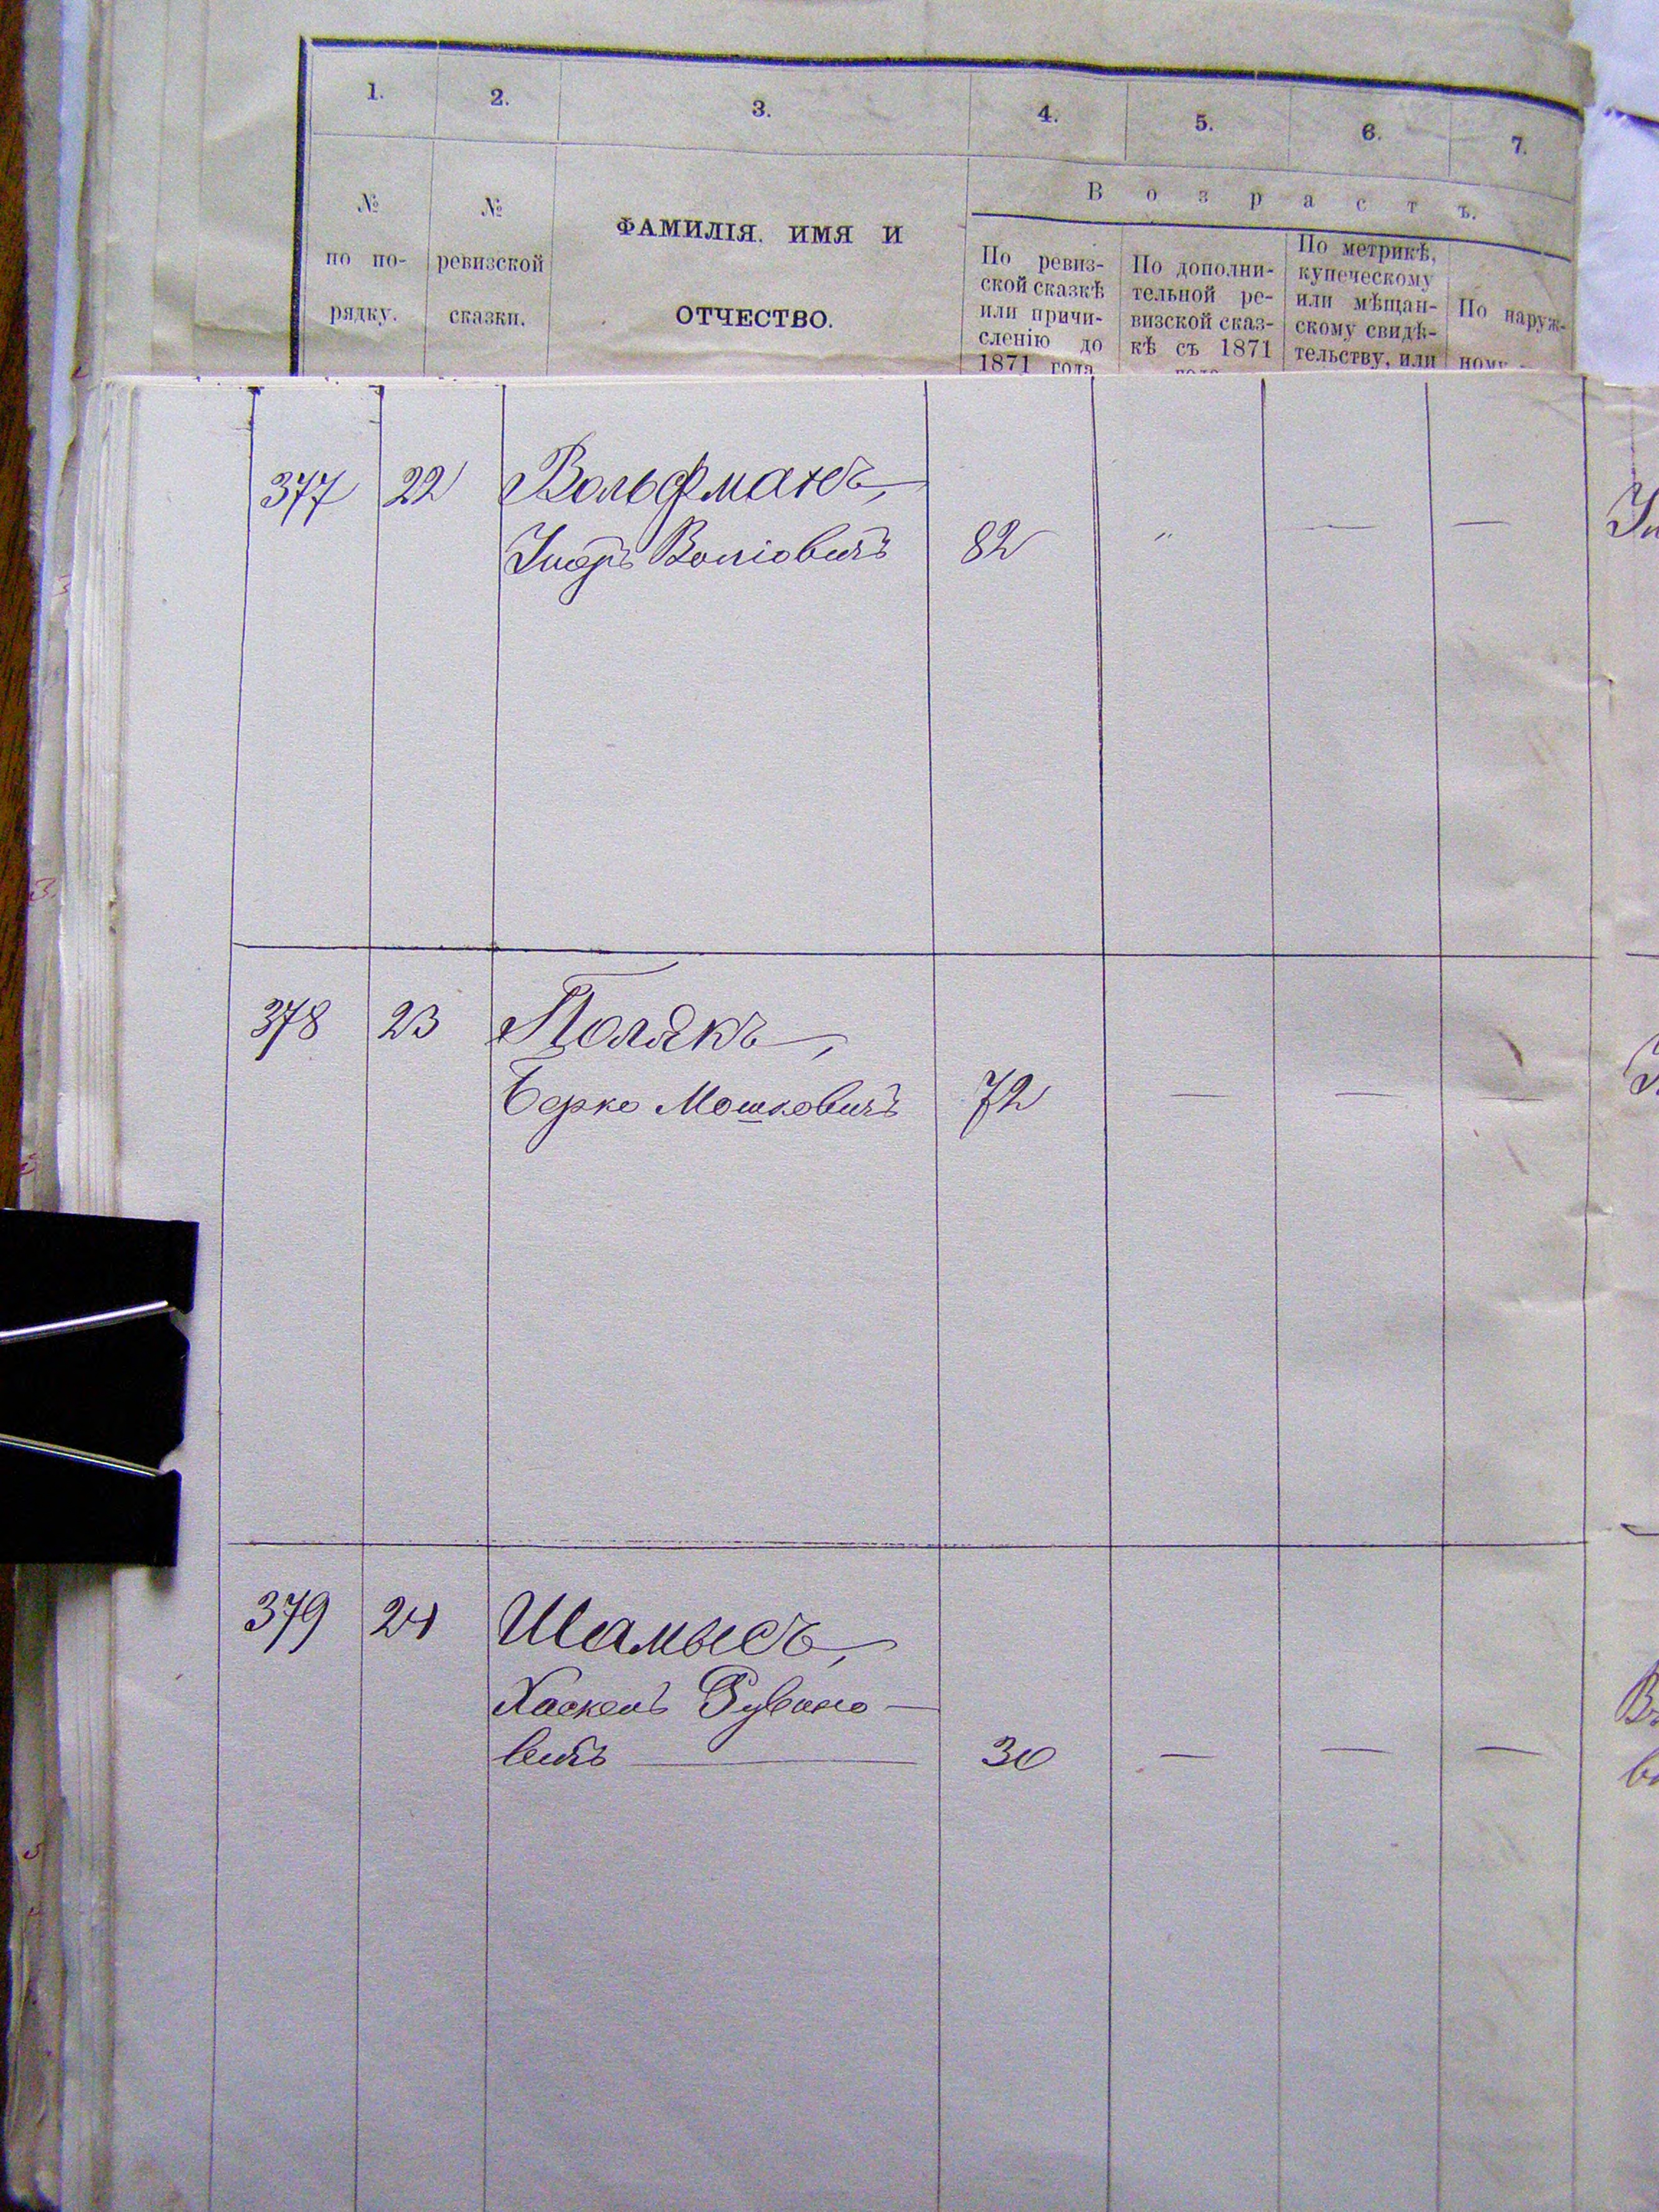 1. 2. 3. 4. 5. 6. 7.
В о з р а с т ъ.
№ по по- рядку.
№ ревизской сказки.
ФАМИЛІЯ. ИМЯ И
ОТЧЕСТВО.
По ревиз-
ской сказкѣ
или причи-
сленію до
1871 года
По дополни-
тельной ре-
визской сказ-
кѣ съ 1871
года
По метрикѣ,
купеческому
или мѣщан-
скому свидѣ-
тельству, или
По наруж-
ному
377 22 Вольфманъ,
Волiовичъ 82 "  — —
378 23 Полякъ,
Берко Мошковичъ 72 — — —
379 24 Шамысъ,
Хаскель Рувино —
вичъ — 30 — — —